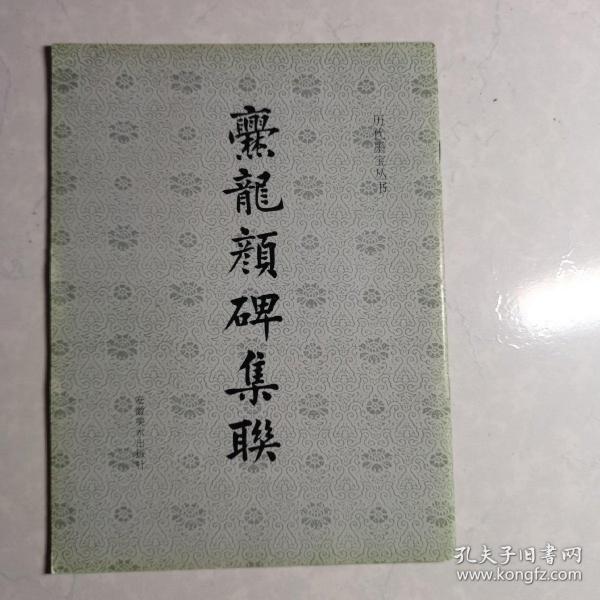 历代墨宝丛书
爨龍顔碑集聯
安徽美术出版社
孔夫子旧書网
www.kongfz.com